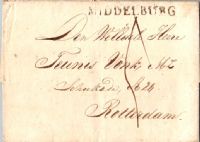 MIDDELBURG
Den Weledele Heer
Teunis Vink MZ
Rotterdam.